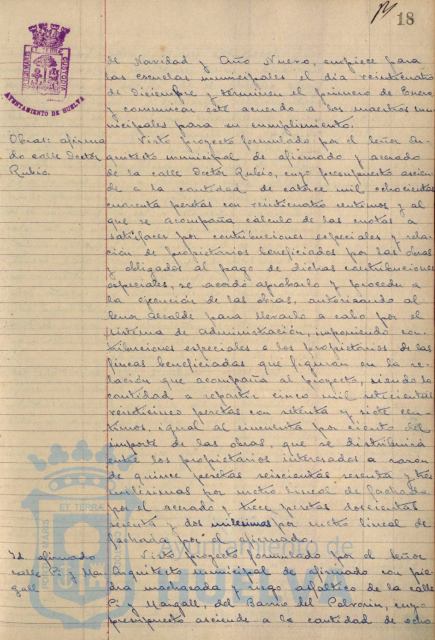 18
AYUNTAMIENTO DE HUELVA
de Navidad y Año Nuevo, empiece para
las escuelas municipales el día veinticuatro
de Diciembre y termine el primero de Enero
y comunicar este acuerdo a los maestros mu-
nicipales para su cumplimiento.
Obras: afirma
do calle Doctor
Rubio
Visto proyecto formulado por el Señor Ar-
quitecto municipal de afirmado y acerado
de la calle Doctor Rubio, cuyo presupuesto ascien-
de a la cantidad de catorce mil ochocientas
cuarenta pesetas con veinticuatro centimos y al
que se acompaña calculo de las cuotas a
satisfacer por contribuciones especiales y rela-
ción de propietarios beneficiados por las obras
y obligados al pago de dichas contribuciones
especiales, se acordó aprobarlo y proceder a
la ejecución de las obras, autorizando al
Señor Alcalde para llevarlo a cabo por el
sistema de administración, imponiendo con-
tribuciones especiales a los propietarios de las
fincas beneficiadas que figuran en la re-
lación que acompaña al proyecto, siendo la
cantidad a repartir cinco mil setecientas
veinticinco pesetas con setenta y siete cen-
timos, igual al cincuenta por ciento del
importe de las obras, que se distribuirá
entre los propietarios interesados a razón
de quince pesetas seiscientas y tres
milesimas por metro lineal de fachada
por el acerado y trece pesetas doscientas
sesenta y dos milesimas por metro lineal de
fachada por el afirmado.
Id. afirmado
calle Pi y Mar
gall
Visto proyecto formulado por el Señor
Arquitecto municipal de afirmado con pie-
dra machacada y riego asfaltico de la calle
Pi y Margall, del Barrio del Polvorin, cuyo
presupuesto asciende a la cantidad de ocho